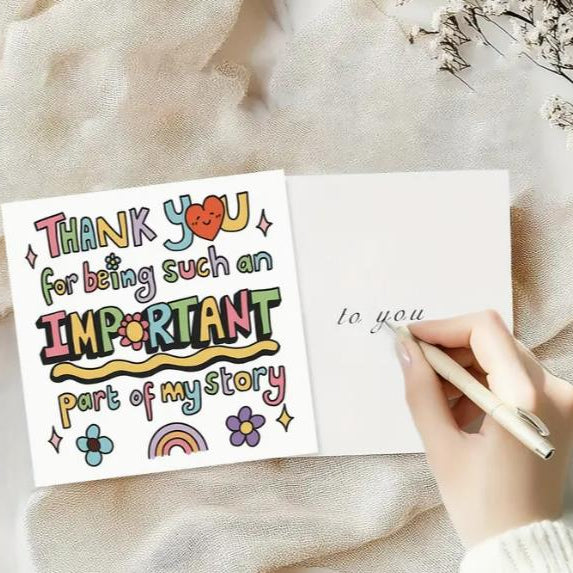 THANK YOU
for being such an
IMPORTANT
part of my story
to you